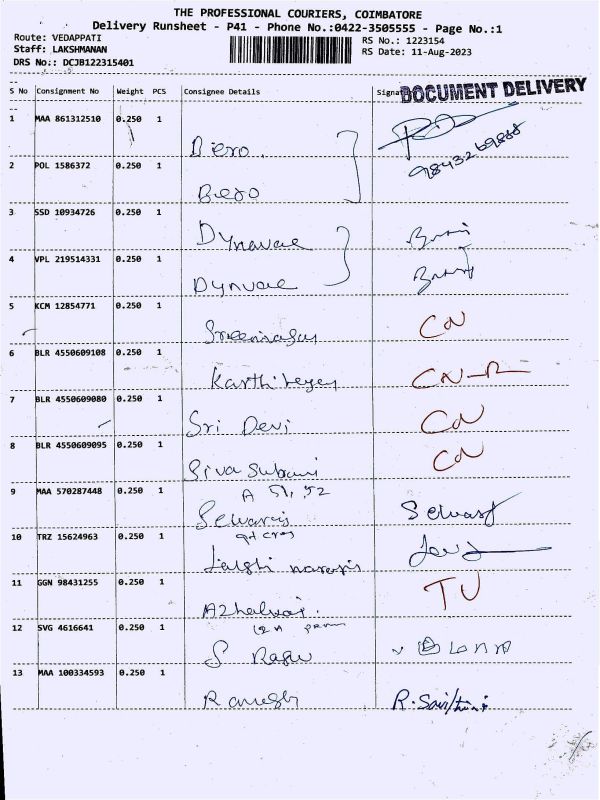 THE PROFESSIONAL COURIERS, COIMBATORE
Delivery Runsheet - P41 - Phone No.:0422-3505555 - Page No.:1
Route: VEDAPPATI RS No.: 1223154
Staff: LAKSHMANAN RS Date: 11-Aug-2023
DRS No:: DCJB122315401
S No Consignment No Weight PCS Consignee Details DOCUMENT DELIVERY
1 MAA 861312510 0.250 1
Biero 9843269888
2 POL 1586372 0.250 1
Biero
3 SSD 10934726 0.250 1
Dynavac
4 VPL 219514331 0.250 1
Dynvac
5 KCM 12854771 0.250 1
CN
6 BLR 4550609108 0.250 1
Karthikeyen CN-R
7 BLR 4550609080 0.250 1
Sri Devi CN
8 BLR 4550609095 0.250 1
Siva Subani CN
9 MAA 570287448 0.250 1
A 51, 52
Selvaraj Selvaraj
10 TRZ 15624963 0.250 1
11 GGN 98431255 0.250 1
TU
12 SVG 4616641 0.250 1
S Ragu
13 MAA 100334593 0.250 1
Ramesh